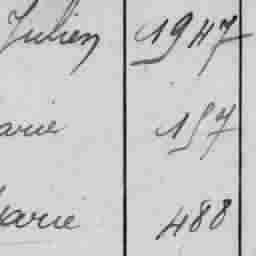 Julien 1947
arie 157
arie 488